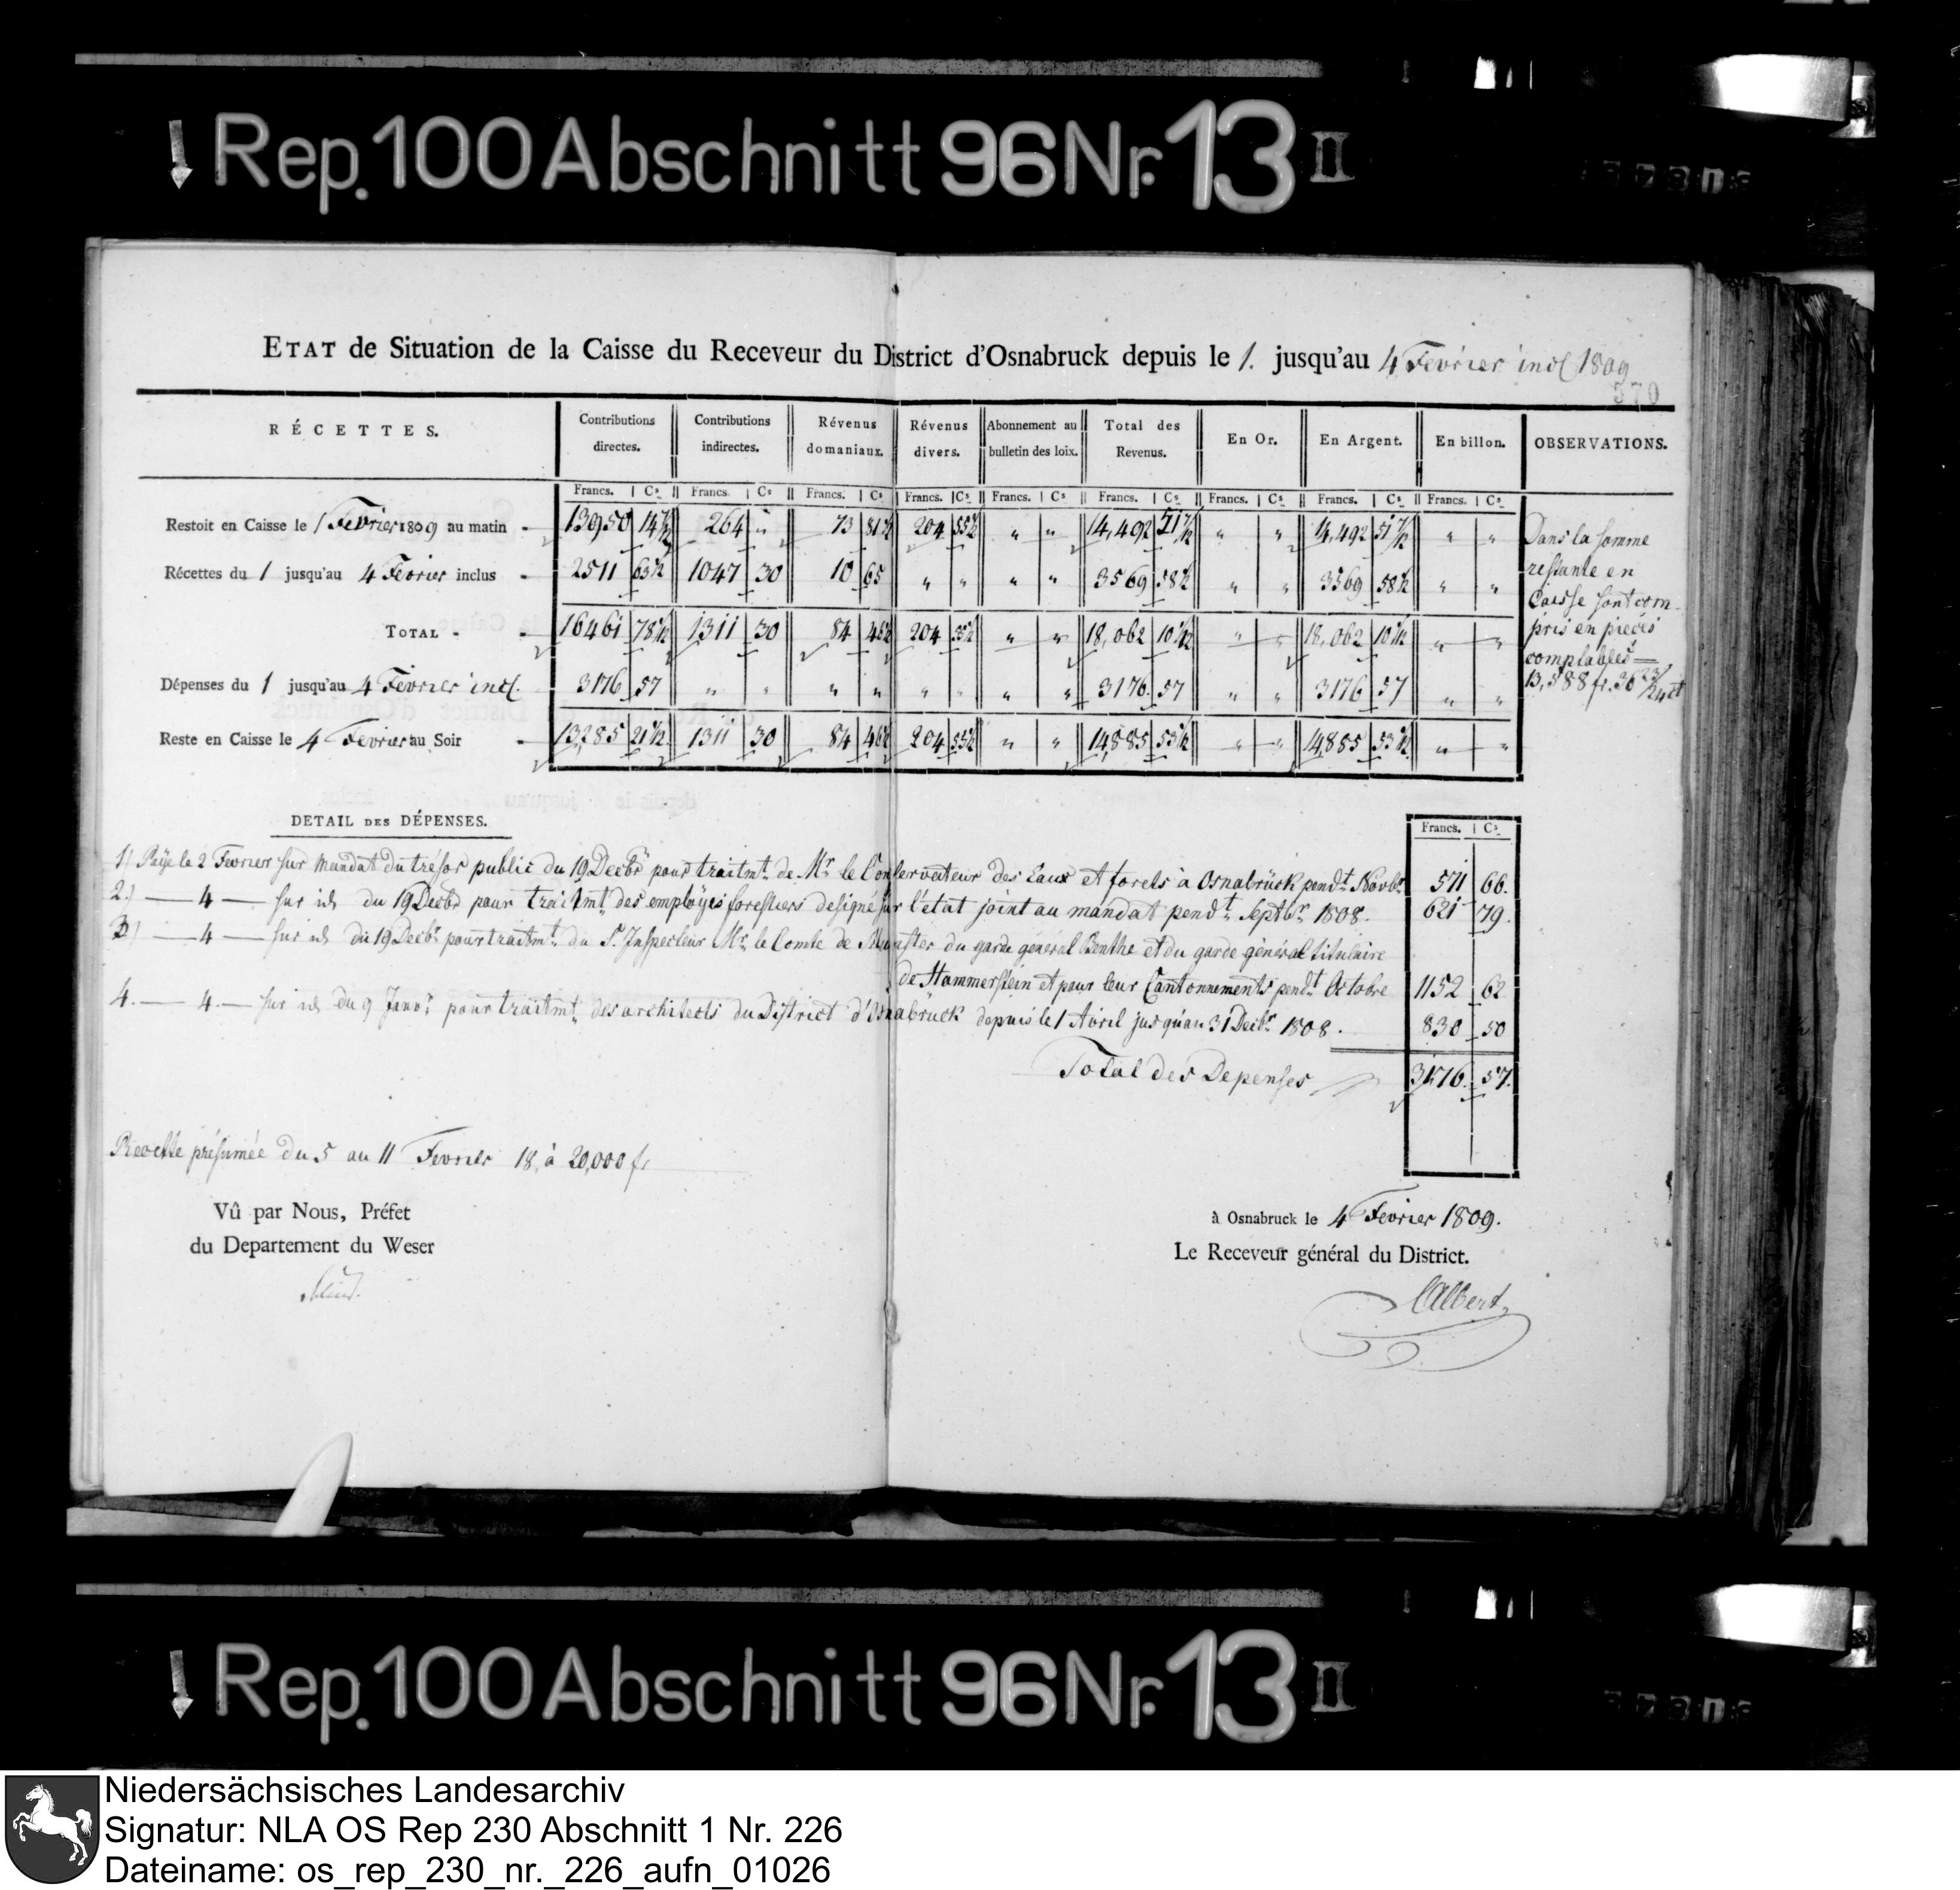 Rep. 100 Abschnitt 96 Nr. 13 II
ETAT de Situation de la Caisse du Receveur du District d'Osnabruck depuis le 1. jusqu'au 4 Fevrier incl 1809
570
RÉCETTES. Contributions directes. Contributions indirectes. Révenus domaniaux. Révenus divers. Abonnement au bulletin des loix. Total des Revenus. En Or. En Argent. En billon. OBSERVATIONS.
Francs. Cs Francs. Cs Francs. Cs Francs. Cs Francs. Cs Francs. Cs Francs. Cs Francs. Cs Francs. Cs
Restoit en Caisse le 1 Fevrier 1809 au matin - 13950 14½ 264 " 73 81½ 204 55½ " " 14,492 51½ " " 14,492 51½ " "
Récettes du 1 jusqu'au 4 Fevrier inclus - 2511 63½ 1047 30 10 65 " " " " 3569 58½ " " 3569 58½ " "
TOTAL - - 16461 78½ 1311 30 84 46½ 204 55½ " " 18,062 10½ " " 18,062 10½ " "
Dépenses du 1 jusqu'au 4 Fevrier incl. 3176 57 " " " " " " " " 3176 57 " " 3176 57 " "
Reste en Caisse le 4 Fevrier au Soir - 13,285 21½ 1311 30 84 46½ 204 55½ " " 14,885 53½ " " 14,885 53½ " "
Dans la somme
restante en
Caisse sont com-
pris en pieces
comptables
13,588 fr. 36
DETAIL DES DÉPENSES.
Francs. Cs
1) Payé le 2 Fevrier sur Mandat du trésor public du 19 Decbr pour traitmt. de Mr. le Conservateur des Eaux et forets à Osnabrück pendt. Novbr 571 66.
2.) — 4 — sur id du 19 Decbr pour traitmt. des employés forestiers designé sur l'état joint au mandat pendt. Septbr. 1808. 621 79.
3) — 4 — sur id du 19 Decbr. pour traitmt. du S. Inspecteur Mr. le Comte de Munster du garde général Benthe et du garde général titulaire
de Hammerstein et pour leur Cantonnements pendt. Octobre 1152 62
4. — 4. — sur id du 9 Janvr pour traitmt. des architects du District d'Osnabrück depuis le 1 Avril jusqu'au 31 Decbr. 1808. 830 50
Total des Depenses 3176. 57.
Recette présumée du 5 au 11 Fevrier 18, à 20,000 fr
Vû par Nous, Préfet
du Departement du Weser
à Osnabruck le 4 Fevrier 1809.
Le Receveur général du District.
Albert
Rep. 100 Abschnitt 96 Nr. 13 II
Niedersächsisches Landesarchiv
Signatur: NLA OS Rep 230 Abschnitt 1 Nr. 226
Dateiname: os_rep_230_nr._226_aufn_01026